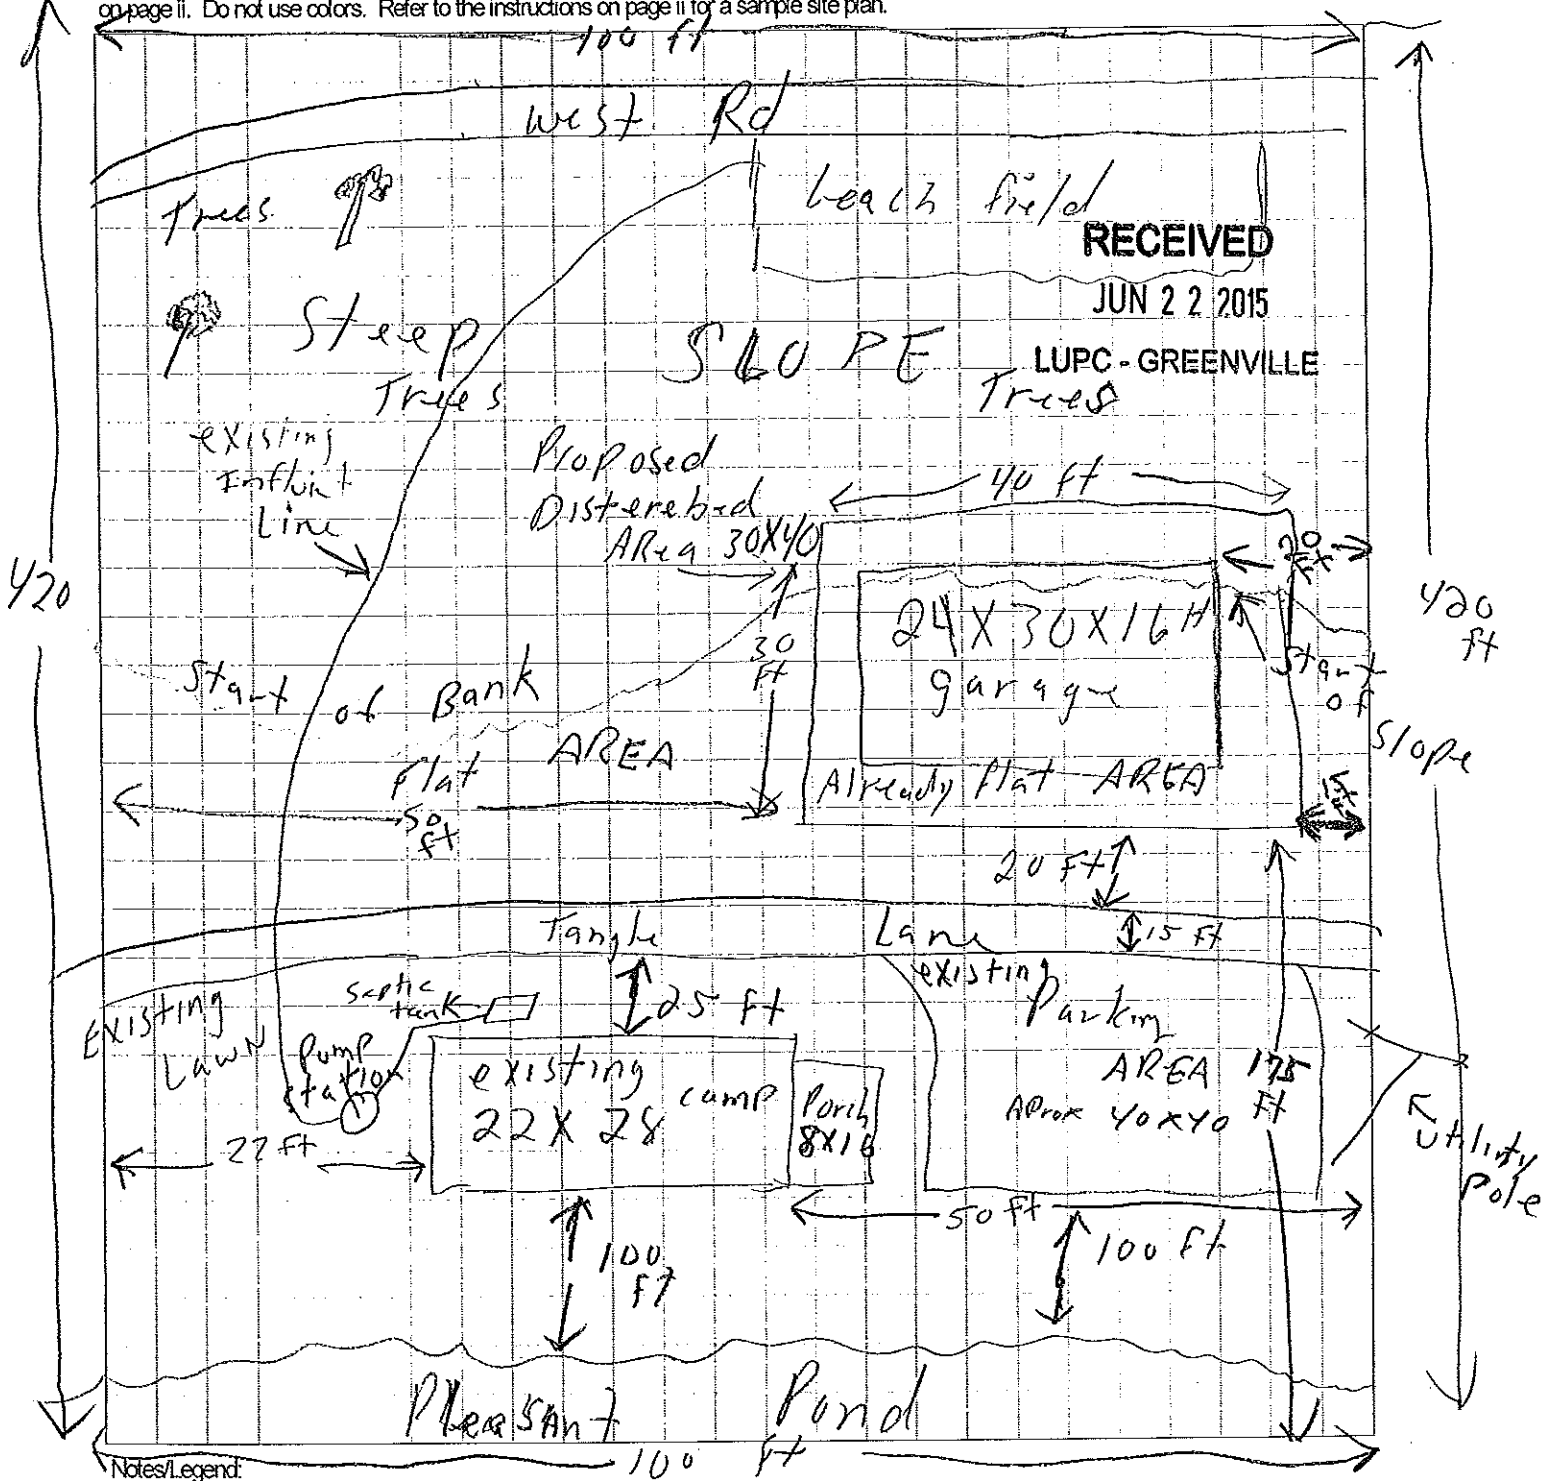 on page ii. Do not use colors. Refer to the instructions on page ii for a sample site plan.
100 ft
West Rd
Trees
Leach field
RECEIVED
JUN 2 2 2015
LUPC - GREENVILLE
Steep SLOPE
Trees
Trees
existing
Influint
Line
Proposed
Disterebed
AREA 30X40
40 ft
20
ft
420
420
ft
24 X 30 X 16 H
garage
30
FT
Start of Bank
Start
of
Slope
Flat AREA
Already flat AREA
50
ft
15
ft
20 FT
Tangle Lane
15 ft
existing
Parking
AREA
Aprox 40x40
septic
tank
25 ft
EXISTING
LAWN
Pump
station
existing
22 X 28
camp
Porch
8X16
175
FT
utility
Pole
22 ft
50 ft
100
FT
100 Ft
Pleasant Pond
100 ft
Notes/Legend: